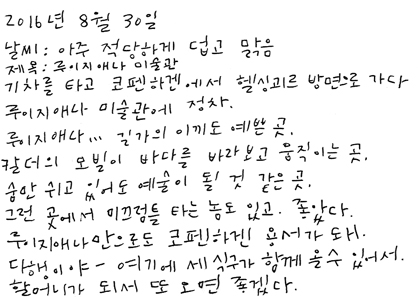 2016년 8월 30일
날씨: 아주 적당하게 덥고 맑음
제목: 루이지애나 미술관
기차를 타고 코펜하겐에서 헬싱괴르 방면으로 가다
루이지애나 미술관에 정차.
루이지애나... 길가의 이끼도 예쁜 곳.
칼더의 모빌이 바다를 바라보고 움직이는 곳.
숨만 쉬고 있어도 예술이 될 것 같은 곳.
그런 곳에서 미끄럼틀 타는 놈도 있고. 좋았다.
루이지애나만으로도 코펜하겐 용서가 돼.
다행이야 - 여기에 세 식구가 함께 올 수 있어서.
할머니가 되서 또 오면 좋겠다.